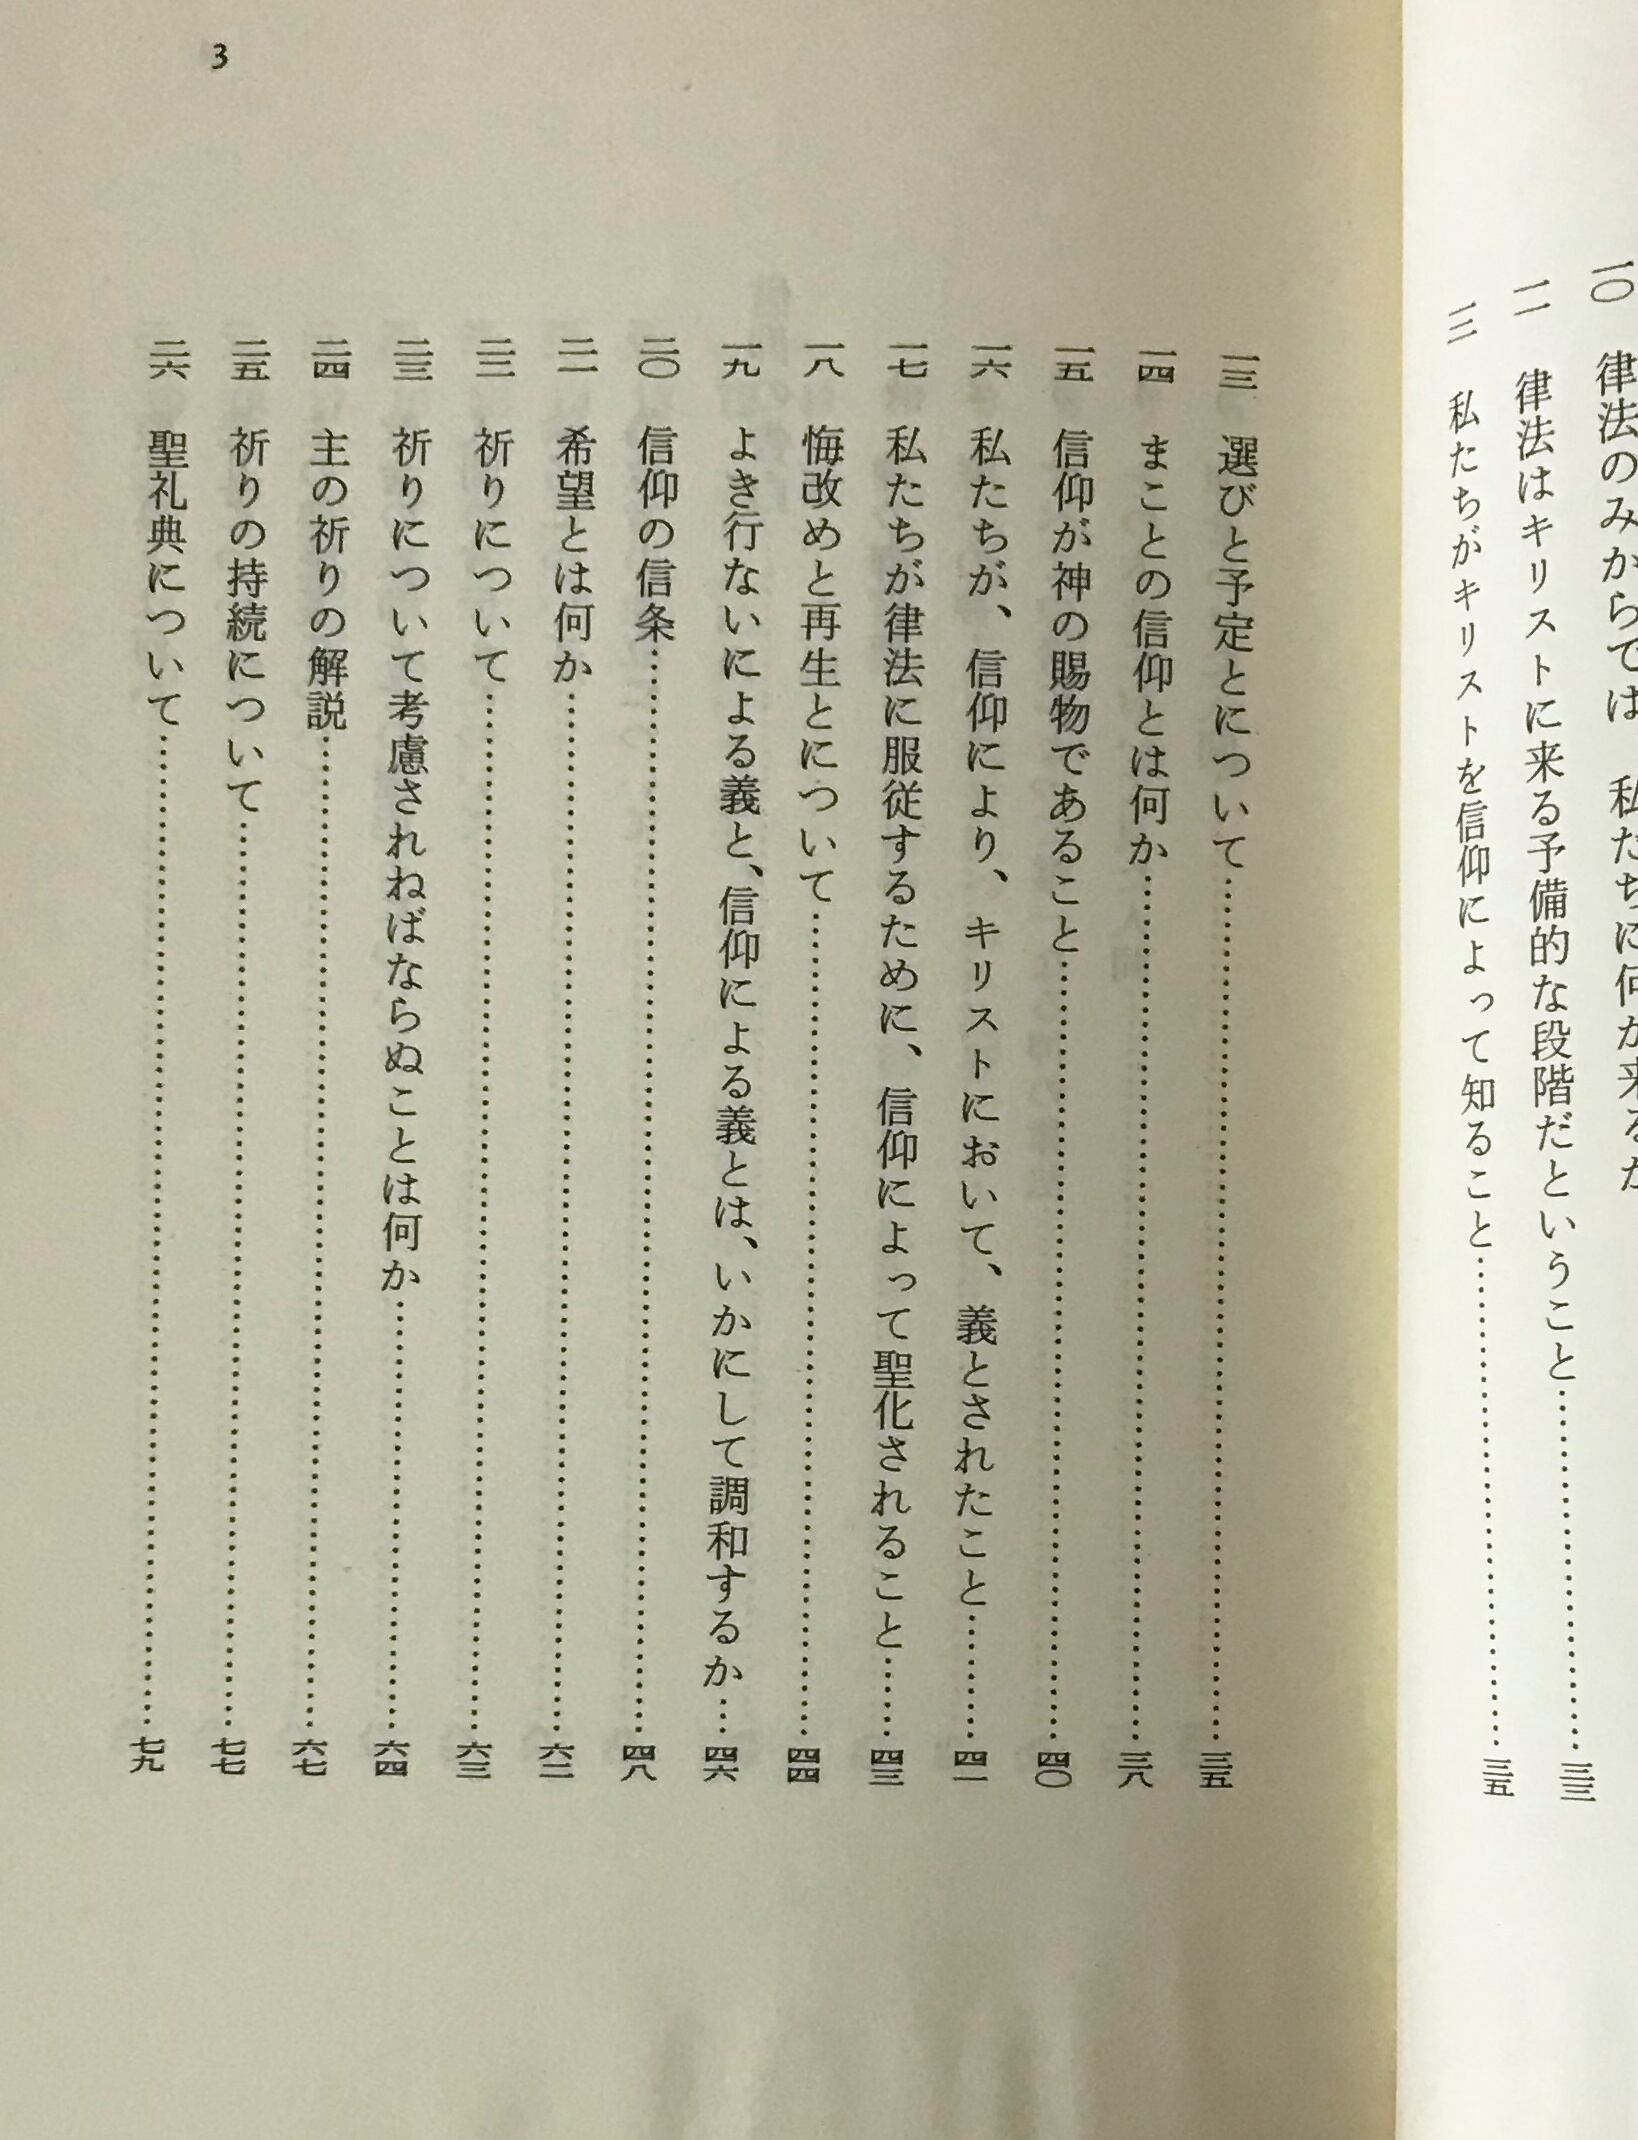 一〇 律法のみからでは 私たちに何が来るか
一一 律法はキリストに来る予備的な段階だということ……三三
一二 私たちがキリストを信仰によって知ること……三五
一三 選びと予定とについて……三五
一四 まことの信仰とは何か……三八
一五 信仰が神の賜物であること……四〇
一六 私たちが、信仰により、キリストにおいて、義とされたこと……四一
一七 私たちが律法に服従するために、信仰によって聖化されること……四三
一八 悔改めと再生とについて……四四
一九 よき行ないによる義と、信仰による義とは、いかにして調和するか……四六
二〇 信仰の信条……四八
二一 希望とは何か……六二
二二 祈りについて……六三
二三 祈りについて考慮されねばならぬことは何か……六四
二四 主の祈りの解説……六七
二五 祈りの持続について……七七
二六 聖礼典について……七九
3